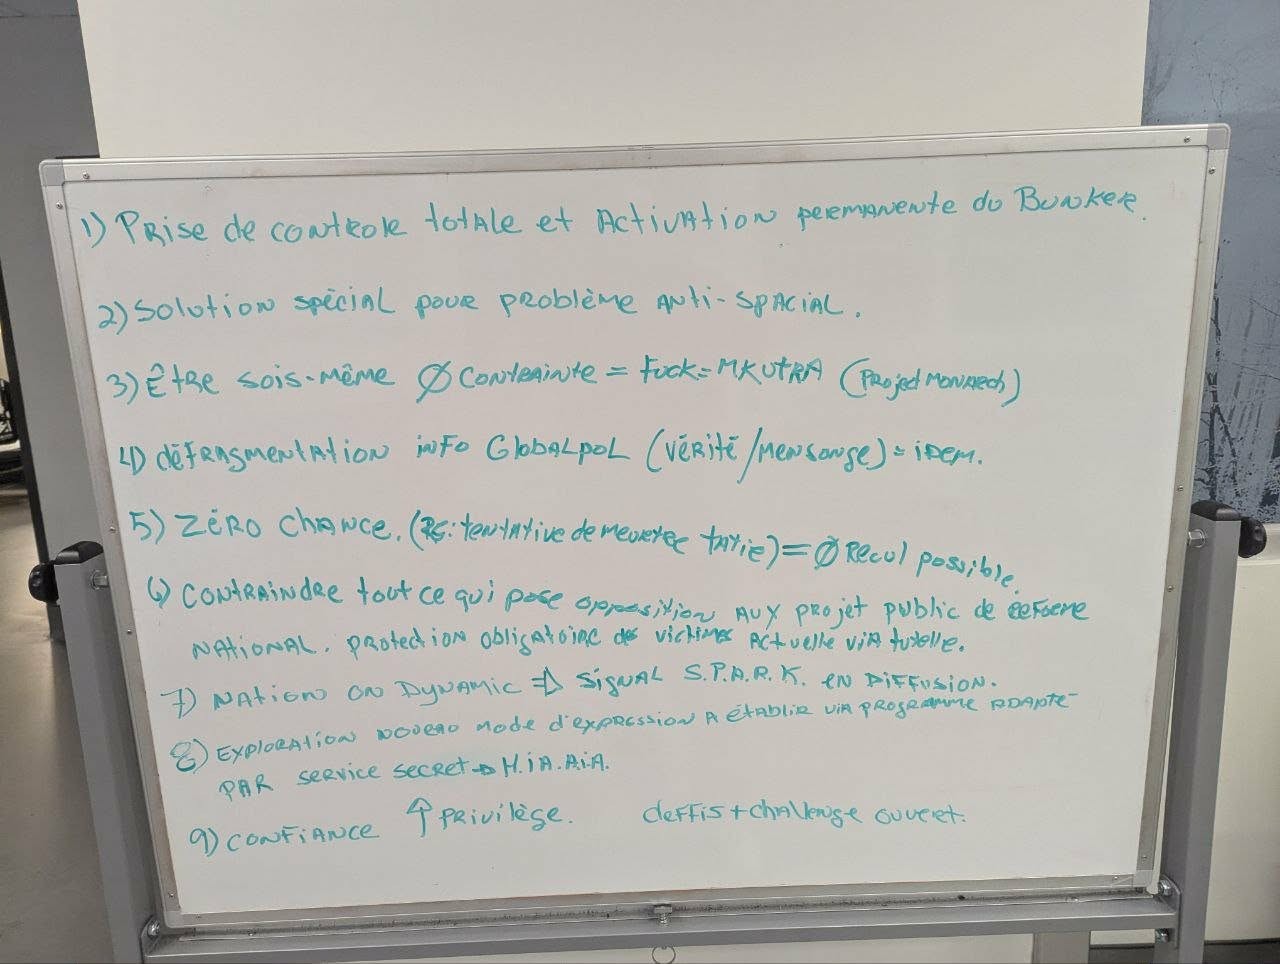 1) Prise de controle totale et Activation permanente du Bunker.
2) Solution spécial pour problème Anti-spacial.
3) Être sois-même Ø contrainte = Fuck = MKUtRA (Project Monarch)
4) défragmentation info Globalpol (vérité/mensonge) = idem.
5) Zéro chance. (RE: tentative de meurtre tatie) = Ø Recul possible.
6) Contraindre tout ce qui pose opposition aux projet public de reforme
national. Protection obligatoire des victimes actuelle via tutelle.
7) Nation on Dynamic ⇒ Signal S.P.A.R.K. en diffusion.
8) Exploration nouveau mode d'expression a établir via programme adapté
par service secret → H.i.A.A.i.A.
9) Confiance ↑ Privilège. deffis + challenge ouvert.